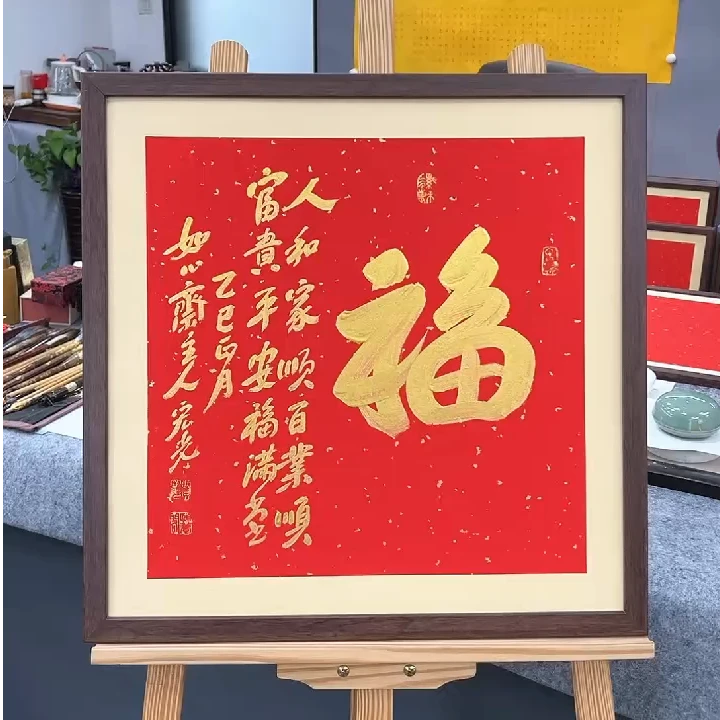 福
人和家順百業順
富貴平安福满堂
乙巳正月
如心齋主人宏光